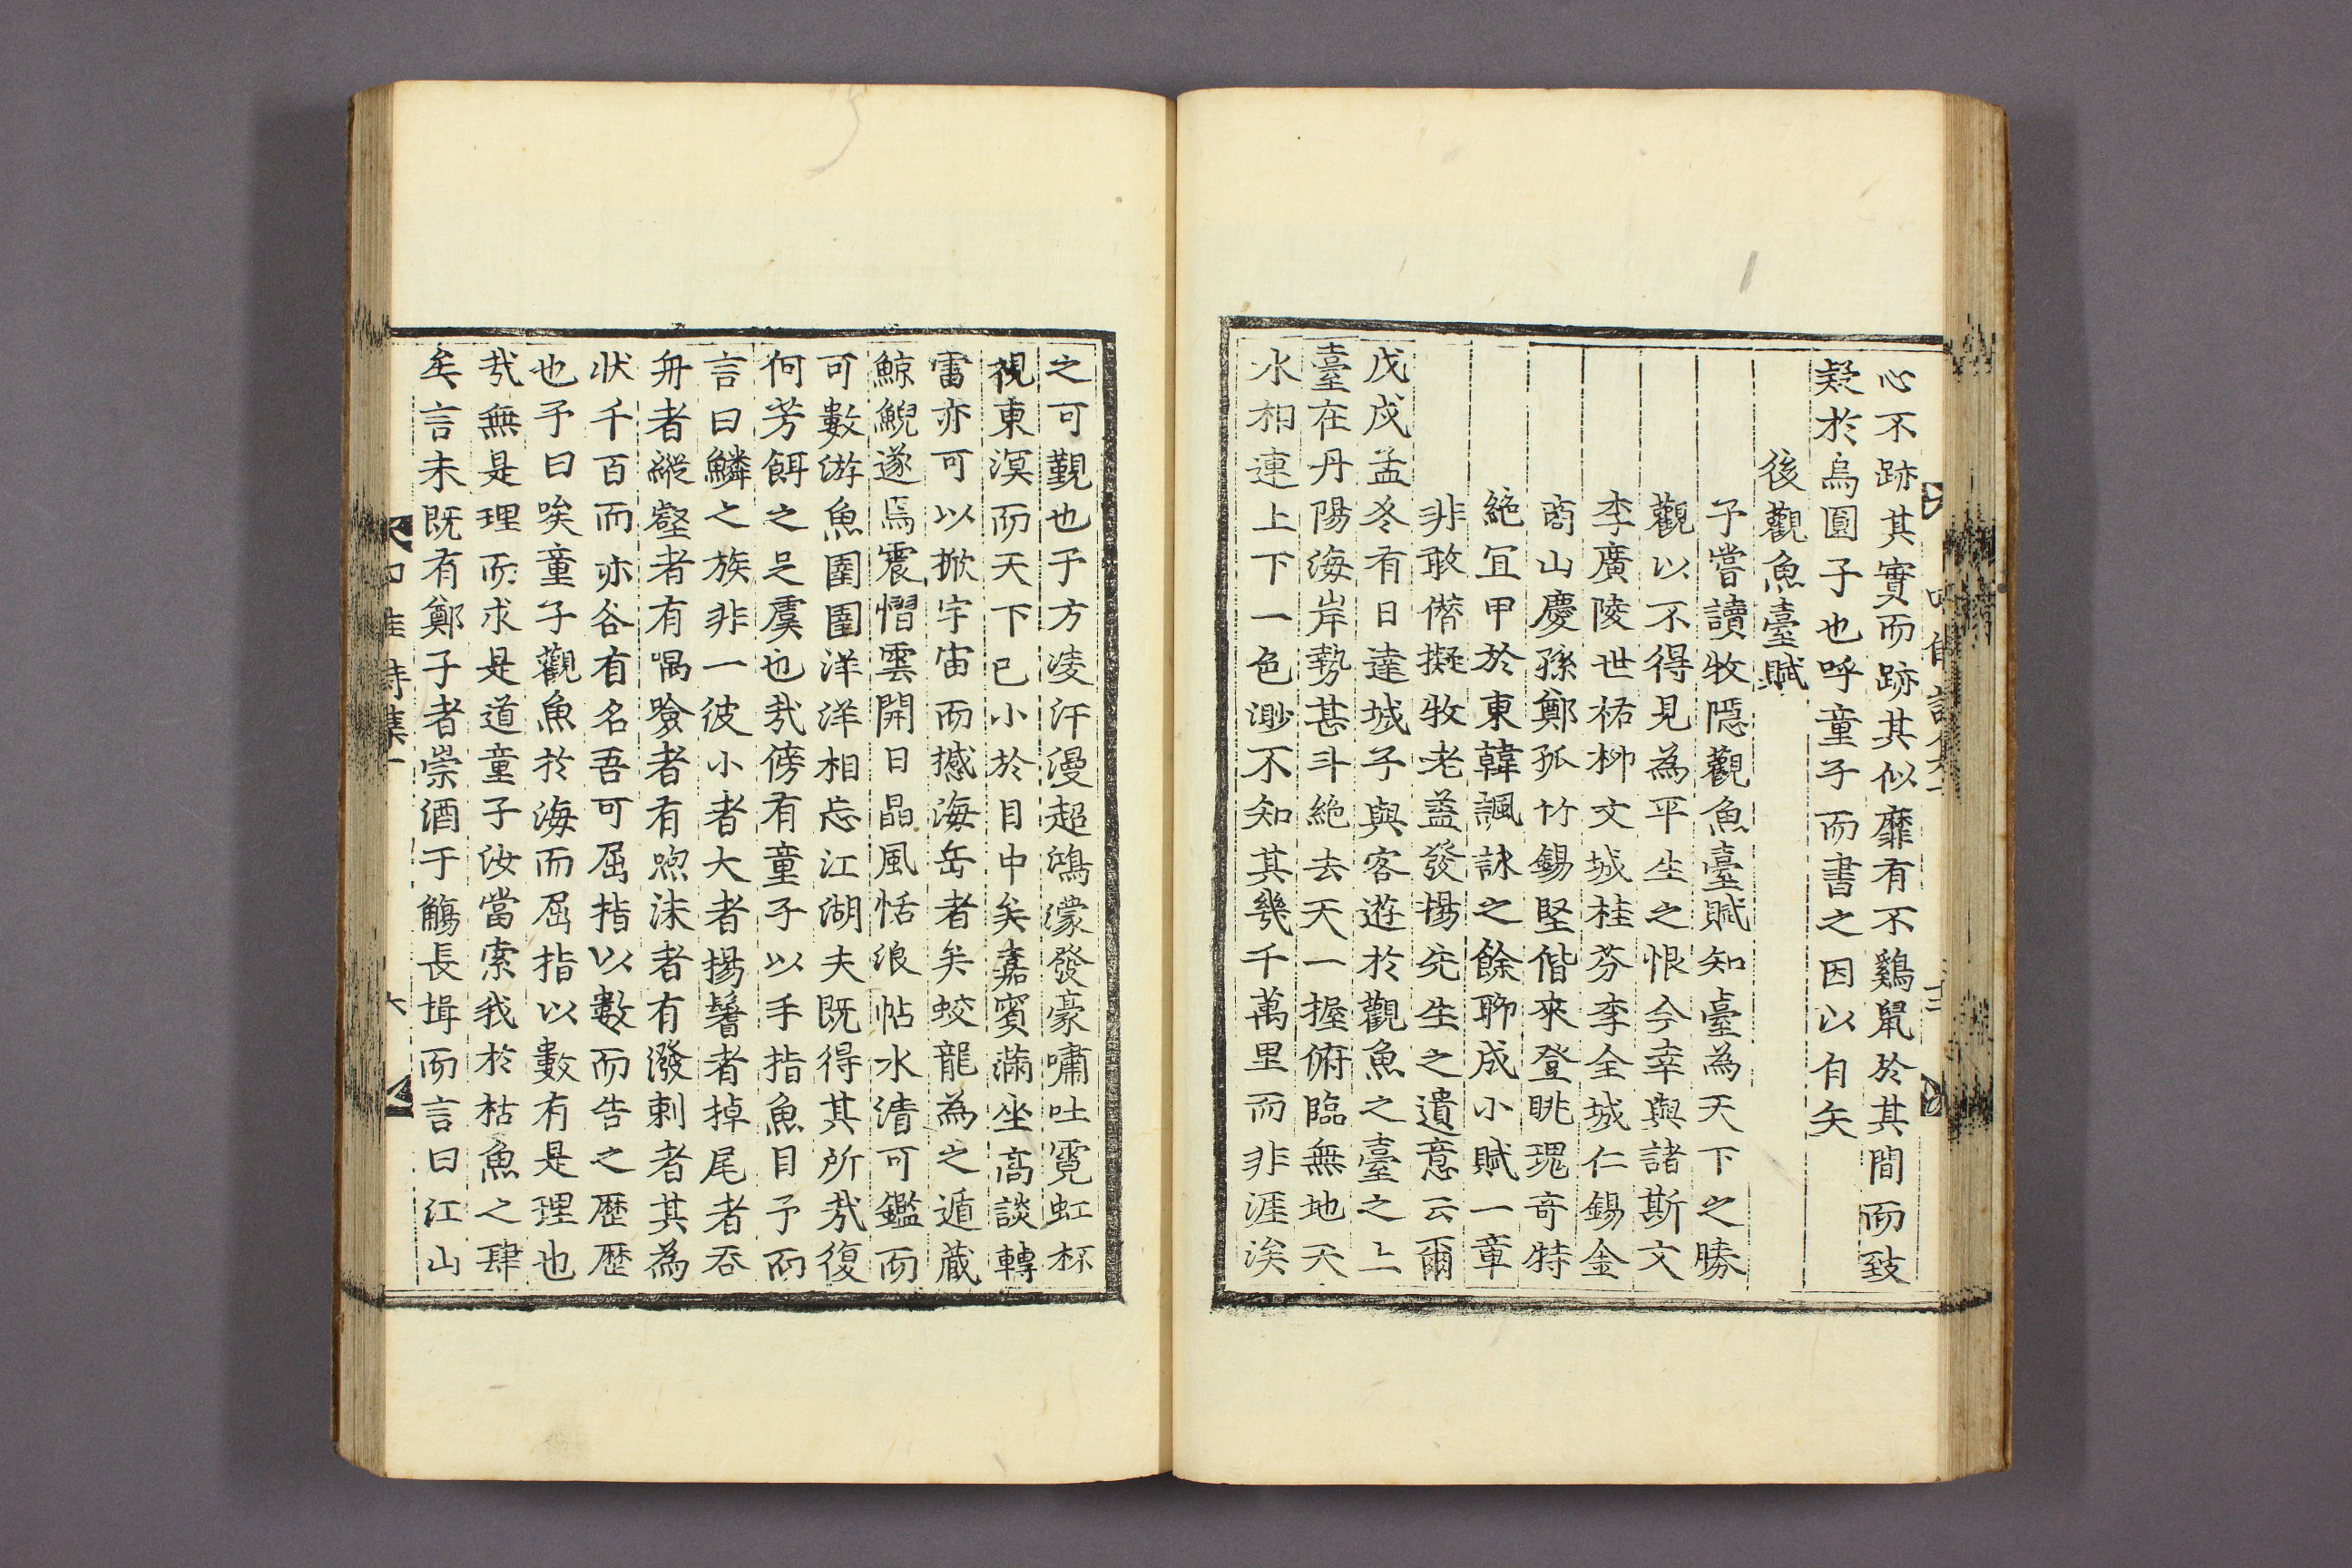 心不跡其實而跡其似靡有不鷄鼠於其間而致
疑於烏圓子也呼童子而書之因以自矢
後觀魚臺賦
予嘗讀牧隱觀魚臺賦知臺為天下之勝
觀以不得見為平生之恨今幸與諸斯文
李廣陵世祐柳文城桂芬李全城仁錫金
商山慶孫鄭孤竹錫堅偕來登眺瑰奇特
絶冝甲於東韓諷詠之餘聊成小賦一章
非敢僭擬牧老盖發揚先生之遺意云爾
戊戌孟冬有日達城子與客遊於觀魚之臺之上
臺在丹陽海岸勢甚斗絶去天一握俯臨無地天
水相連上下一色渺不知其幾千萬里而非涯涘
之可覿也予方凌汗漫超鴻濛發豪嘯吐霓虹杯
視東溟而天下已小於目中矣嘉賓滿坐高談轉
雷亦可以掀宇宙而撼海岳者矣蛟龍為之遁藏
鯨鯢遂焉震慴雲開日晶風恬浪帖水清可鑑而
可數游魚圉圉洋洋相忘江湖夫既得其所哉復
何芳餌之足虞也哉傍有童子以手指魚目予而
言曰鱗之族非一彼小者大者揚鬐者掉尾者吞
舟者縱壑者有喁噞者有喣沫者有潑剌者其為
狀千百而亦各有名吾可屈指以數而告之歷歷
也予曰唉童子觀魚於海而屈指以數有是理也
哉無是理而求是道童子汝當索我於枯魚之肆
矣言未既有鄭子者崇酒于觴長揖而言曰江山